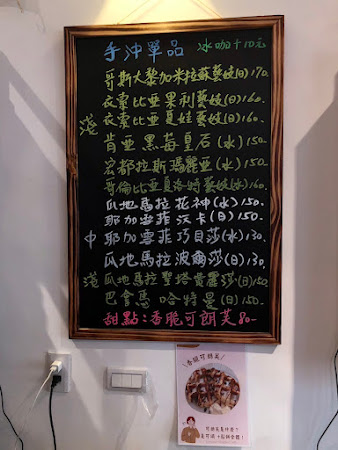 手沖單品 冰咖+10元
哥斯大黎加米拉蘇藝妓(日)170.
淺
衣索比亞果利藝妓(日)160.
衣索比亞夏娃藝妓(水)160.
肯亞黑莓皇石(水)150.
宏都拉斯瑪麗亞(水)150.
哥倫比亞夏洛特藝妓(水)160.
瓜地馬拉花神(水)150.
耶加雪菲沃卡(日)150.
中 耶加雪菲巧貝莎(水)130.
瓜地馬拉波爾莎(水)130.
淺 瓜地馬拉聖塔費麗莎(日)150
巴拿馬哈特曼(日)150.
甜點:香脆可朗芙80-
香脆可朗芙